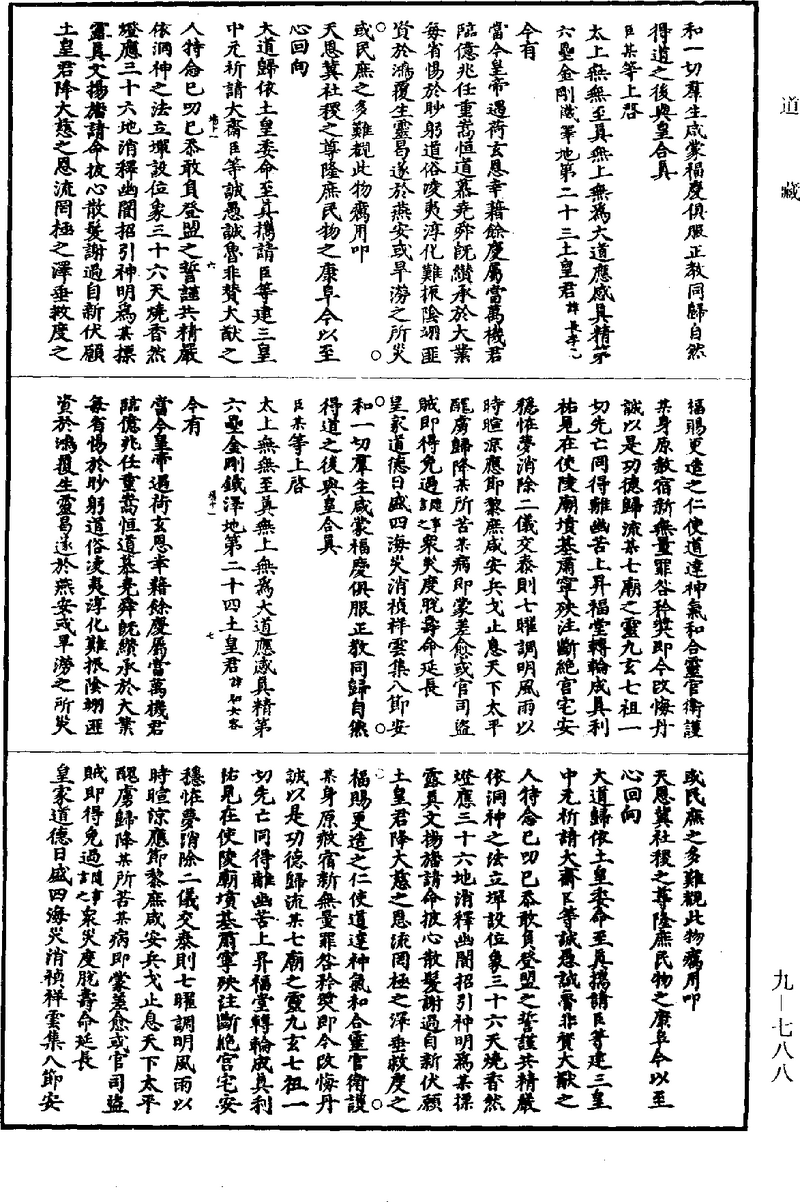 道藏
和一切羣生咸蒙福慶俱服正教同歸自然
得道之後與皇合真
臣某等上啓
太上無無至真無上無爲大道應感真精第
六壘金剛鐵澤地第二十三土皇君諱長李元
今有
當今皇帝遇荷玄恩幸藉餘慶屬當萬機君
臨億兆任重嵩恒道慕堯舜旣纘承於大業
每省惕於眇躬道俗凌夷淳化難振陰翊匪
資於鴻覆生靈曷遂於燕安或旱澇之所災
或民庶之多難覩此物癘用叩
天恩冀社稷之尊隆庶民物之康阜今以至
心回向
大道歸依土皇委命至真攜請臣等建三皇
中元祈請大齋臣等誠愚誠魯非贊大猷之
人特念已叨已忝敢負登盟之誓謹共精嚴
依洞神之法立壇設位象三十六天燒香然
燈應三十六地消釋幽闇招引神明爲某標
靈真文揚旛請命披心散髮謝過自新伏願
土皇君降大慈之恩流罔極之澤垂救度之
福賜更造之仁使道達神氣和合靈官衛護
某身原赦宿新無量罪咎矜獎即今改悔丹
誠以是功德歸流某七廟之靈九玄七祖一
切先亡同得離幽苦上昇福堂轉輪成真利
祐見在使陵廟墳墓肅寧殃注斷絶宮宅安
穩恠夢消除二儀交泰則七曜調明風雨以
時暄涼應節黎庶咸安兵戈止息天下太平
醜虜歸降某所苦某病即蒙差愈或官司盜
賊即得免過隨事言之衆災度脫壽命延長
皇家道德日盛四海災消禎祥雲集八節安
和一切羣生咸蒙福慶俱服正教同歸自然
得道之後與皇合真
臣某等上啓
太上無無至真無上無爲大道應感真精第
六壘金剛鐵澤地第二十四土皇君諱
今有
當今皇帝遇荷玄恩幸藉餘慶屬當萬機君
臨億兆任重嵩恒道慕堯舜旣纘承於大業
每省惕於眇躬道俗凌夷淳化難振陰翊匪
資於鴻覆生靈曷遂於燕安或旱澇之所災
或民庶之多難覩此物癘用叩
天恩冀社稷之尊隆庶民物之康阜今以至
心回向
大道歸依土皇委命至真攜請臣等建三皇
中元祈請大齋臣等誠愚誠魯非贊大猷之
人特念已叨已忝敢負登盟之誓謹共精嚴
依洞神之法立壇設位象三十六天燒香然
燈應三十六地消釋幽闇招引神明爲某標
露真文揚旛請命披心散髮謝過自新伏願
土皇君降大慈之恩流罔極之澤垂救度之
福賜更造之仁使道達神氣和合靈官衛護
某身原赦宿新無量罪咎矜獎即今改悔丹
誠以是功德歸流某七廟之靈九玄七祖一
切先亡同得離幽苦上昇福堂轉輪成真利
祐見在使陵廟墳墓肅寧殃注斷絶宮宅安
穩恠夢消除二儀交泰則七曜調明風雨以
時暄涼應節黎庶咸安兵戈止息天下太平
醜虜歸降某所苦某病即蒙差愈或官司盜
賊即得免過隨事言之衆災度脫壽命延長
皇家道德日盛四海災消禎祥雲集八節安
九—七八八